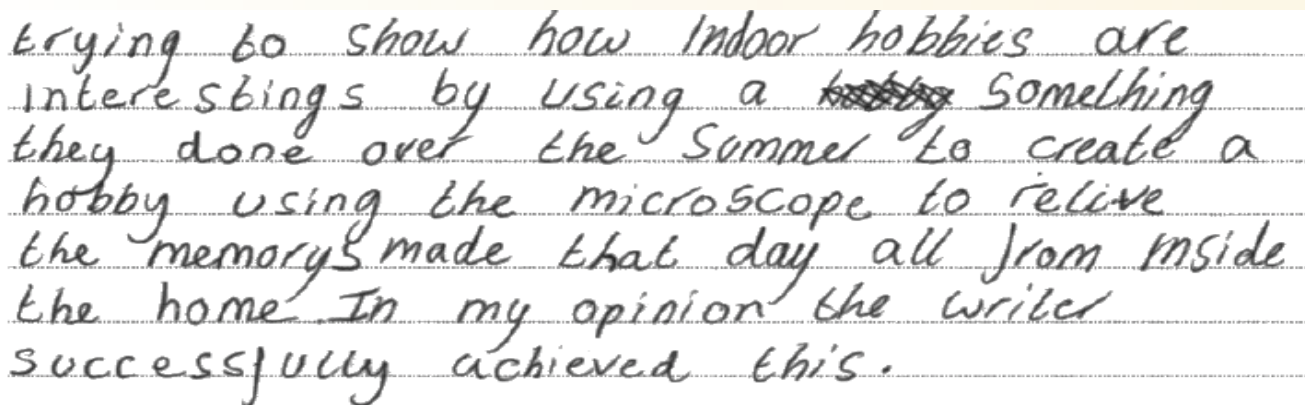 trying to show how Indoor hobbies are
Interestings by using a Something
they done over the Summer to create a
hobby using the microscope to relive
the memorys made that day all from inside
the home. In my opinion the writer
successfully achieved this.